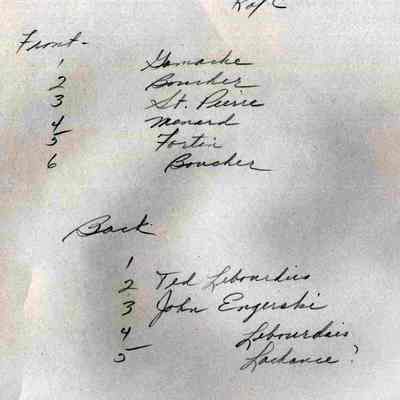 Front-
1 Gamache
2 Boucher
3 St. Pierre
4 Menard
5 Fortin
6 Boucher
Back
1
2 Ted Lebourdais
3 John Engerski
4 Lebourdais
5 Lachance?